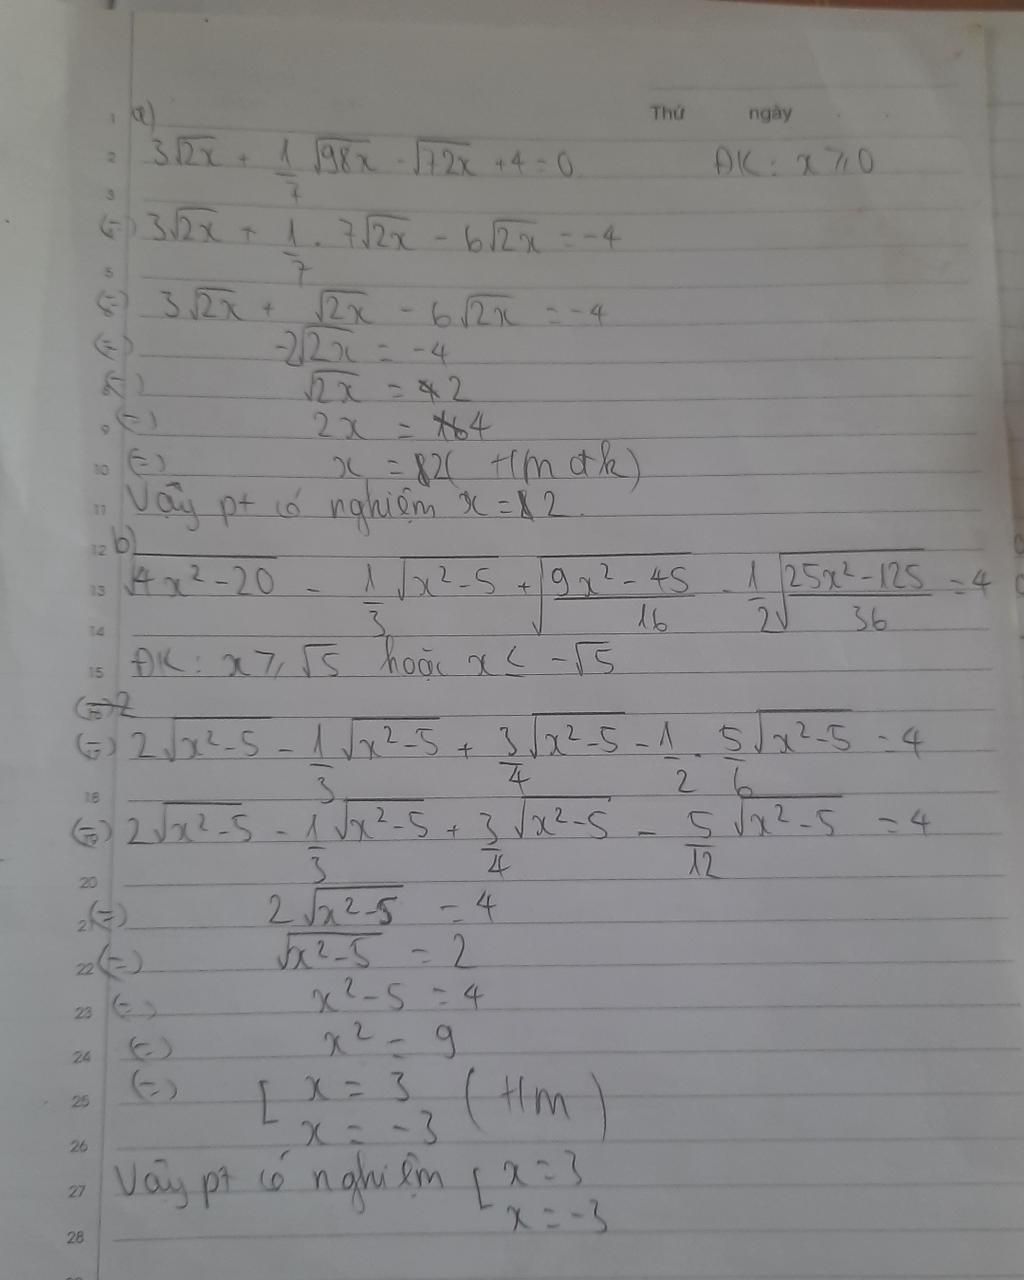 Thứ ngày
a)
3√2x + 1/7 √98x - √72x + 4 = 0 ĐK: x ⩾ 0
(=) 3√2x + 1/7 . 7√2x - 6√2x = -4
(=) 3√2x + √2x - 6√2x = -4
(=) -2√2x = -4
(=) √2x = 2
(=) 2x = 4
(=) x = 2 (t/m đk)
Vậy pt có nghiệm x = 2.
b)
√4x² - 20 - 1/3 √x² - 5 + √(9x² - 45)/16 - 1/2 √(25x² - 125)/36 = 4
ĐK: x ⩾ √5 hoặc x ≤ -√5
(=) 2√x² - 5 - 1/3 √x² - 5 + 3/4 √x² - 5 - 1/2 . 5/6 √x² - 5 = 4
(=) 2√x² - 5 - 1/3 √x² - 5 + 3/4 √x² - 5 - 5/12 √x² - 5 = 4
(=) 2√x² - 5 = 4
(=) √x² - 5 = 2
(=) x² - 5 = 4
(=) x² = 9
(=) [ x = 3 (t/m)
x = -3
Vậy pt có nghiệm [ x = 3
x = -3